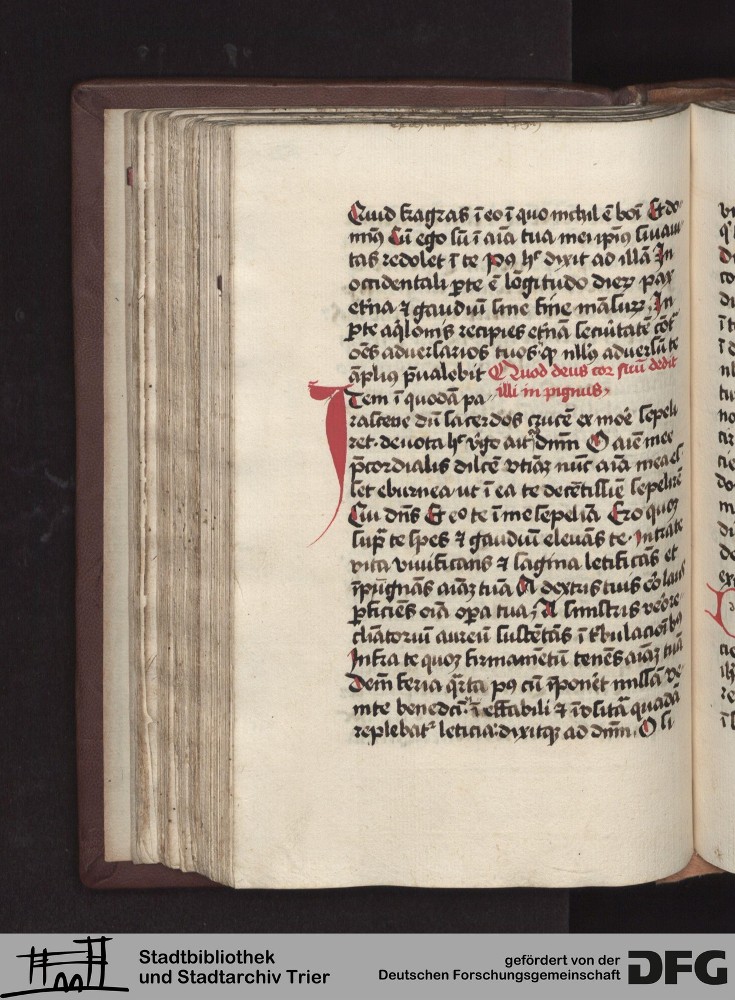 Quid fragras ī eo ī quo nichil ē boī Et do-
mīꝯ Cū ego sū ī aīa tua mei ipīꝯ suaui-
tas redolet ī te Pꝯ hͨ dixit ad illā In
occidentali ꝑte ē lōgitudo dieꝝ pax
etīna ⁊ gaudiū sine fine māsuꝝ, In
ꝑte aq̄lonis recipies etīnā secūitatē cōt̄
oēs aduersarios tuos, qꝫ nllꝯ aduersū te
āpliꝰ p̄ualebit Quod deus cor suū dedit
illi in pignus,
ITem ī quodā pa-
rasceue dū sacerdos crucē ex moē sepeli
ret. deuota hͨ v̄go ait dnm̄ O aīe mee
p̄cordialis dilcē vtiāꝫ nūc aīa mea es-
set eburnea ut ī ea te decētissīe sepelirē
Cui dn̄s Et eo te ī me sepeliā Ero quoꝫ
supͣ te spes ⁊ gaudiū eleuās te. Intra te
vita viuificans ⁊ sagina letificās et
īpīgnās aīaꝫ tuā A dextris tuis eō laus
ꝑficiēs oīa oꝑa tua; A sinistris ve͛o re-
cliatoriū aureū sustētās ī t͛bulacioībꝯ
Infra te quoꝫ firmamētū tenēs aīaꝫ tuā
Item feria q̄rta pꝯ cū īponēt missā Ve-
nite benedcī: ī effabili ⁊ īvsitā quadā
replebat᷑ leticia: dixitqꝫ ad dnm̄. O si
Stadtbibliothek
und Stadtarchiv Trier
gefördert von der
Deutschen Forschungsgemeinschaft
DFG